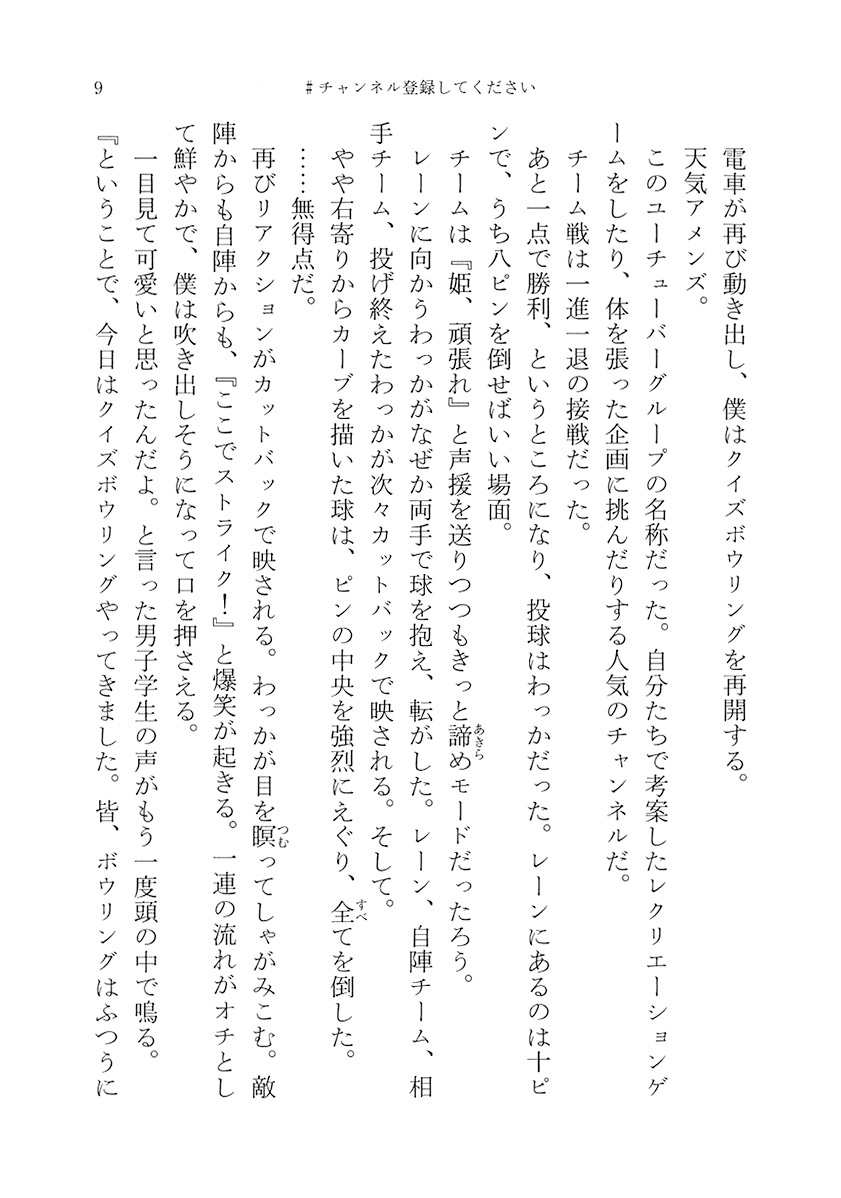 9
#チャンネル登録してください
電車が再び動き出し、僕はクイズボウリングを再開する。
天気アメンズ。
このユーチューバーグループの名称だった。自分たちで考案したレクリエーションゲ
ームをしたり、体を張った企画に挑んだりする人気のチャンネルだ。
チーム戦は一進一退の接戦だった。
あと一点で勝利、というところになり、投球はわっかだった。レーンにあるのは十ピ
ンで、うち八ピンを倒せばいい場面。
チームは『姫、頑張れ』と声援を送りつつもきっと諦めモードだったろう。
あきら
レーンに向かうわっかがなぜか両手で球を抱え、転がした。レーン、自陣チーム、相
手チーム、投げ終えたわっかが次々カットバックで映される。そして。
やや右寄りからカーブを描いた球は、ピンの中央を強烈にえぐり、全てを倒した。
すべ
……無得点だ。
再びリアクションがカットバックで映される。わっかが目を瞑ってしゃがみこむ。敵
つむ
陣からも自陣からも、『ここでストライク！』と爆笑が起きる。一連の流れがオチとし
て鮮やかで、僕は吹き出しそうになって口を押さえる。
一目見て可愛いと思ったんだよ。と言った男子学生の声がもう一度頭の中で鳴る。
『ということで、今日はクイズボウリングやってきました。皆、ボウリングはふつうに